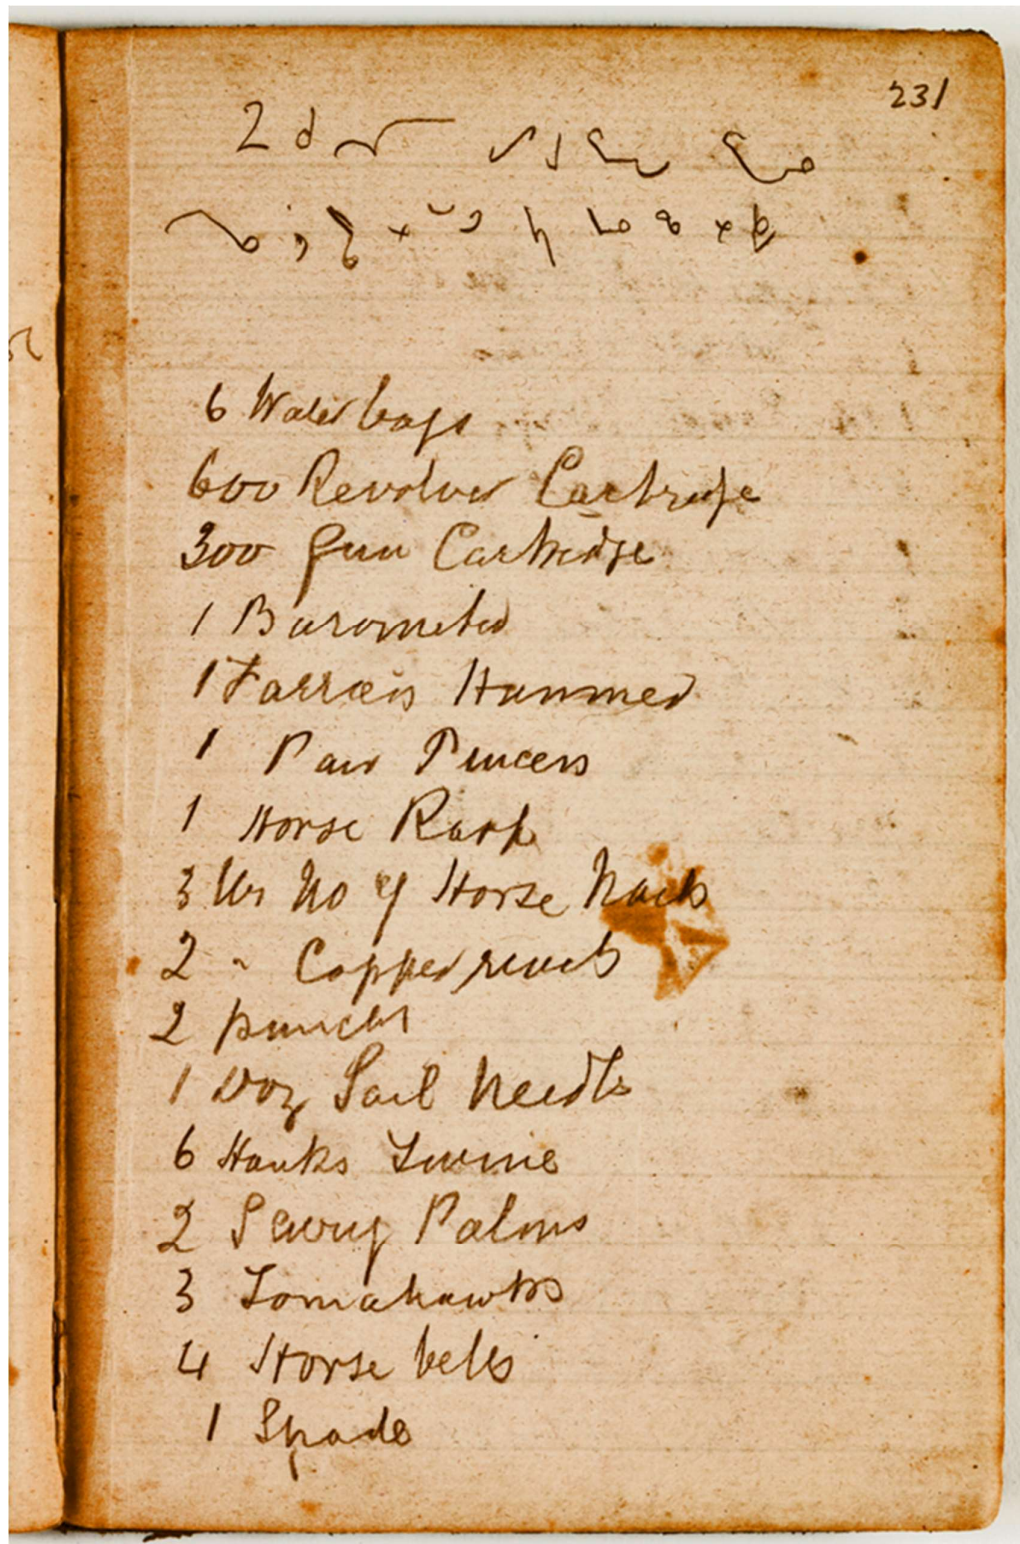 231
2
6 Water bags
600 Revolver Cartridge
300 Gun Cartridge
1 Barometer
1 Farriers Hammer
1 Pair Pincers
1 Horse Rasp
3 lbs No 7 Horse Nails
2 " Copper rivets
2 punches
1 Doz Sail Needls
6 Hanks Twine
2 Sewing Palms
3 Tomahawks
4 Horse bells
1 Spade